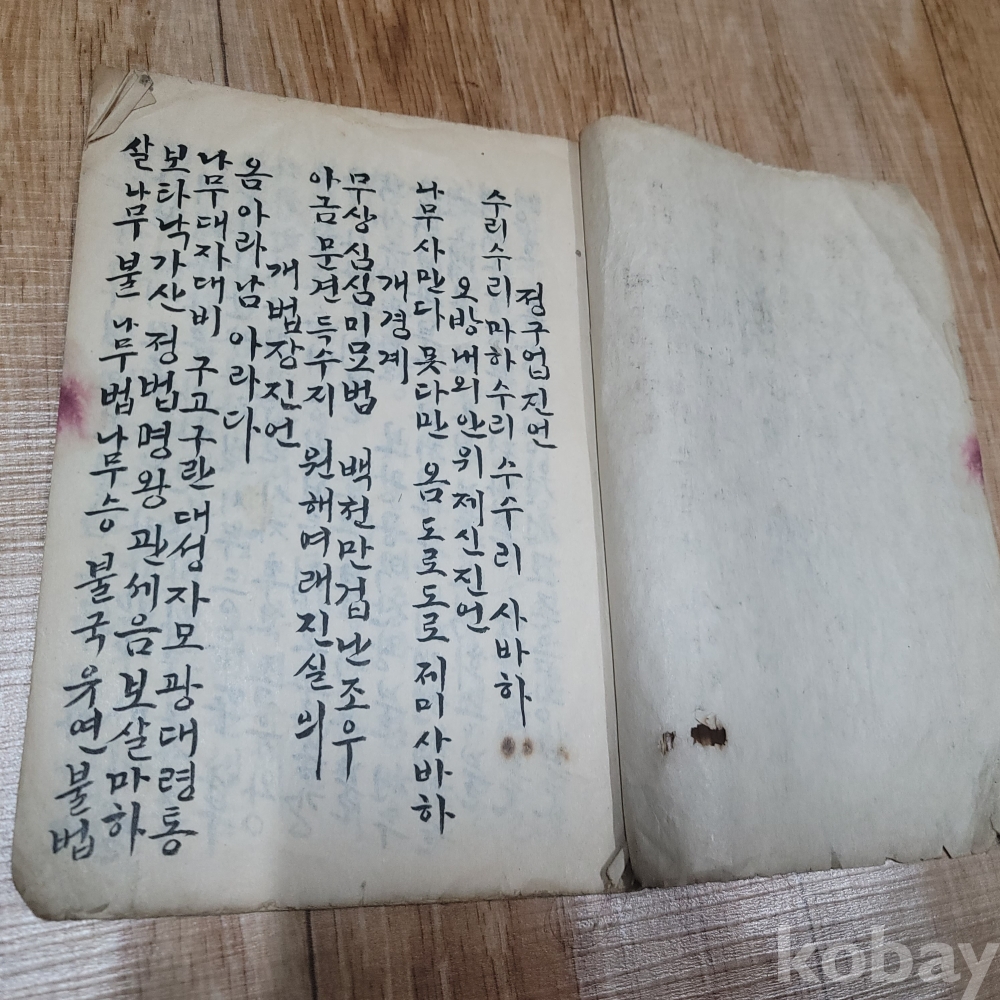 정구업진언
수리수리 마하수리 수수리 사바하
오방내외안위제신진언
나무 사만다 못다만 옴 도로도로 제미 사바하
개경계
무상심심미묘법 백천만겁난조우
아금문견득수지 원해여래진실의
개법장진언
옴 아라남 아라다
나무대자대비 구고구란대성자모 광대령통
보타낙가산 정법명왕 관세음보살마하
살 나무불 나무법 나무승 불국유연 불법
kobay